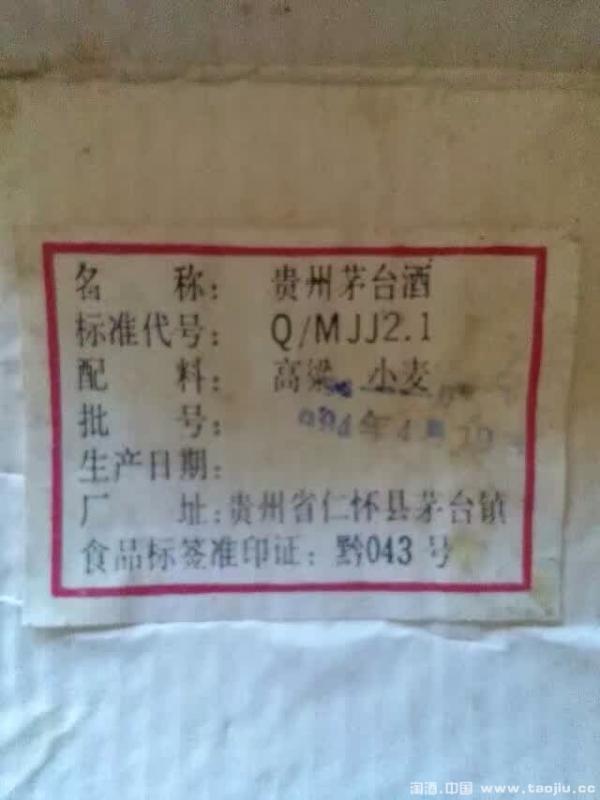 名 称: 贵州茅台酒
标准代号: Q/MJJ2.1
配 料: 高粱 小麦
批 号:
生产日期:
厂 址: 贵州省仁怀县茅台镇
食品标签准印证: 黔043号
淘酒.中国 www.taojiu.cc